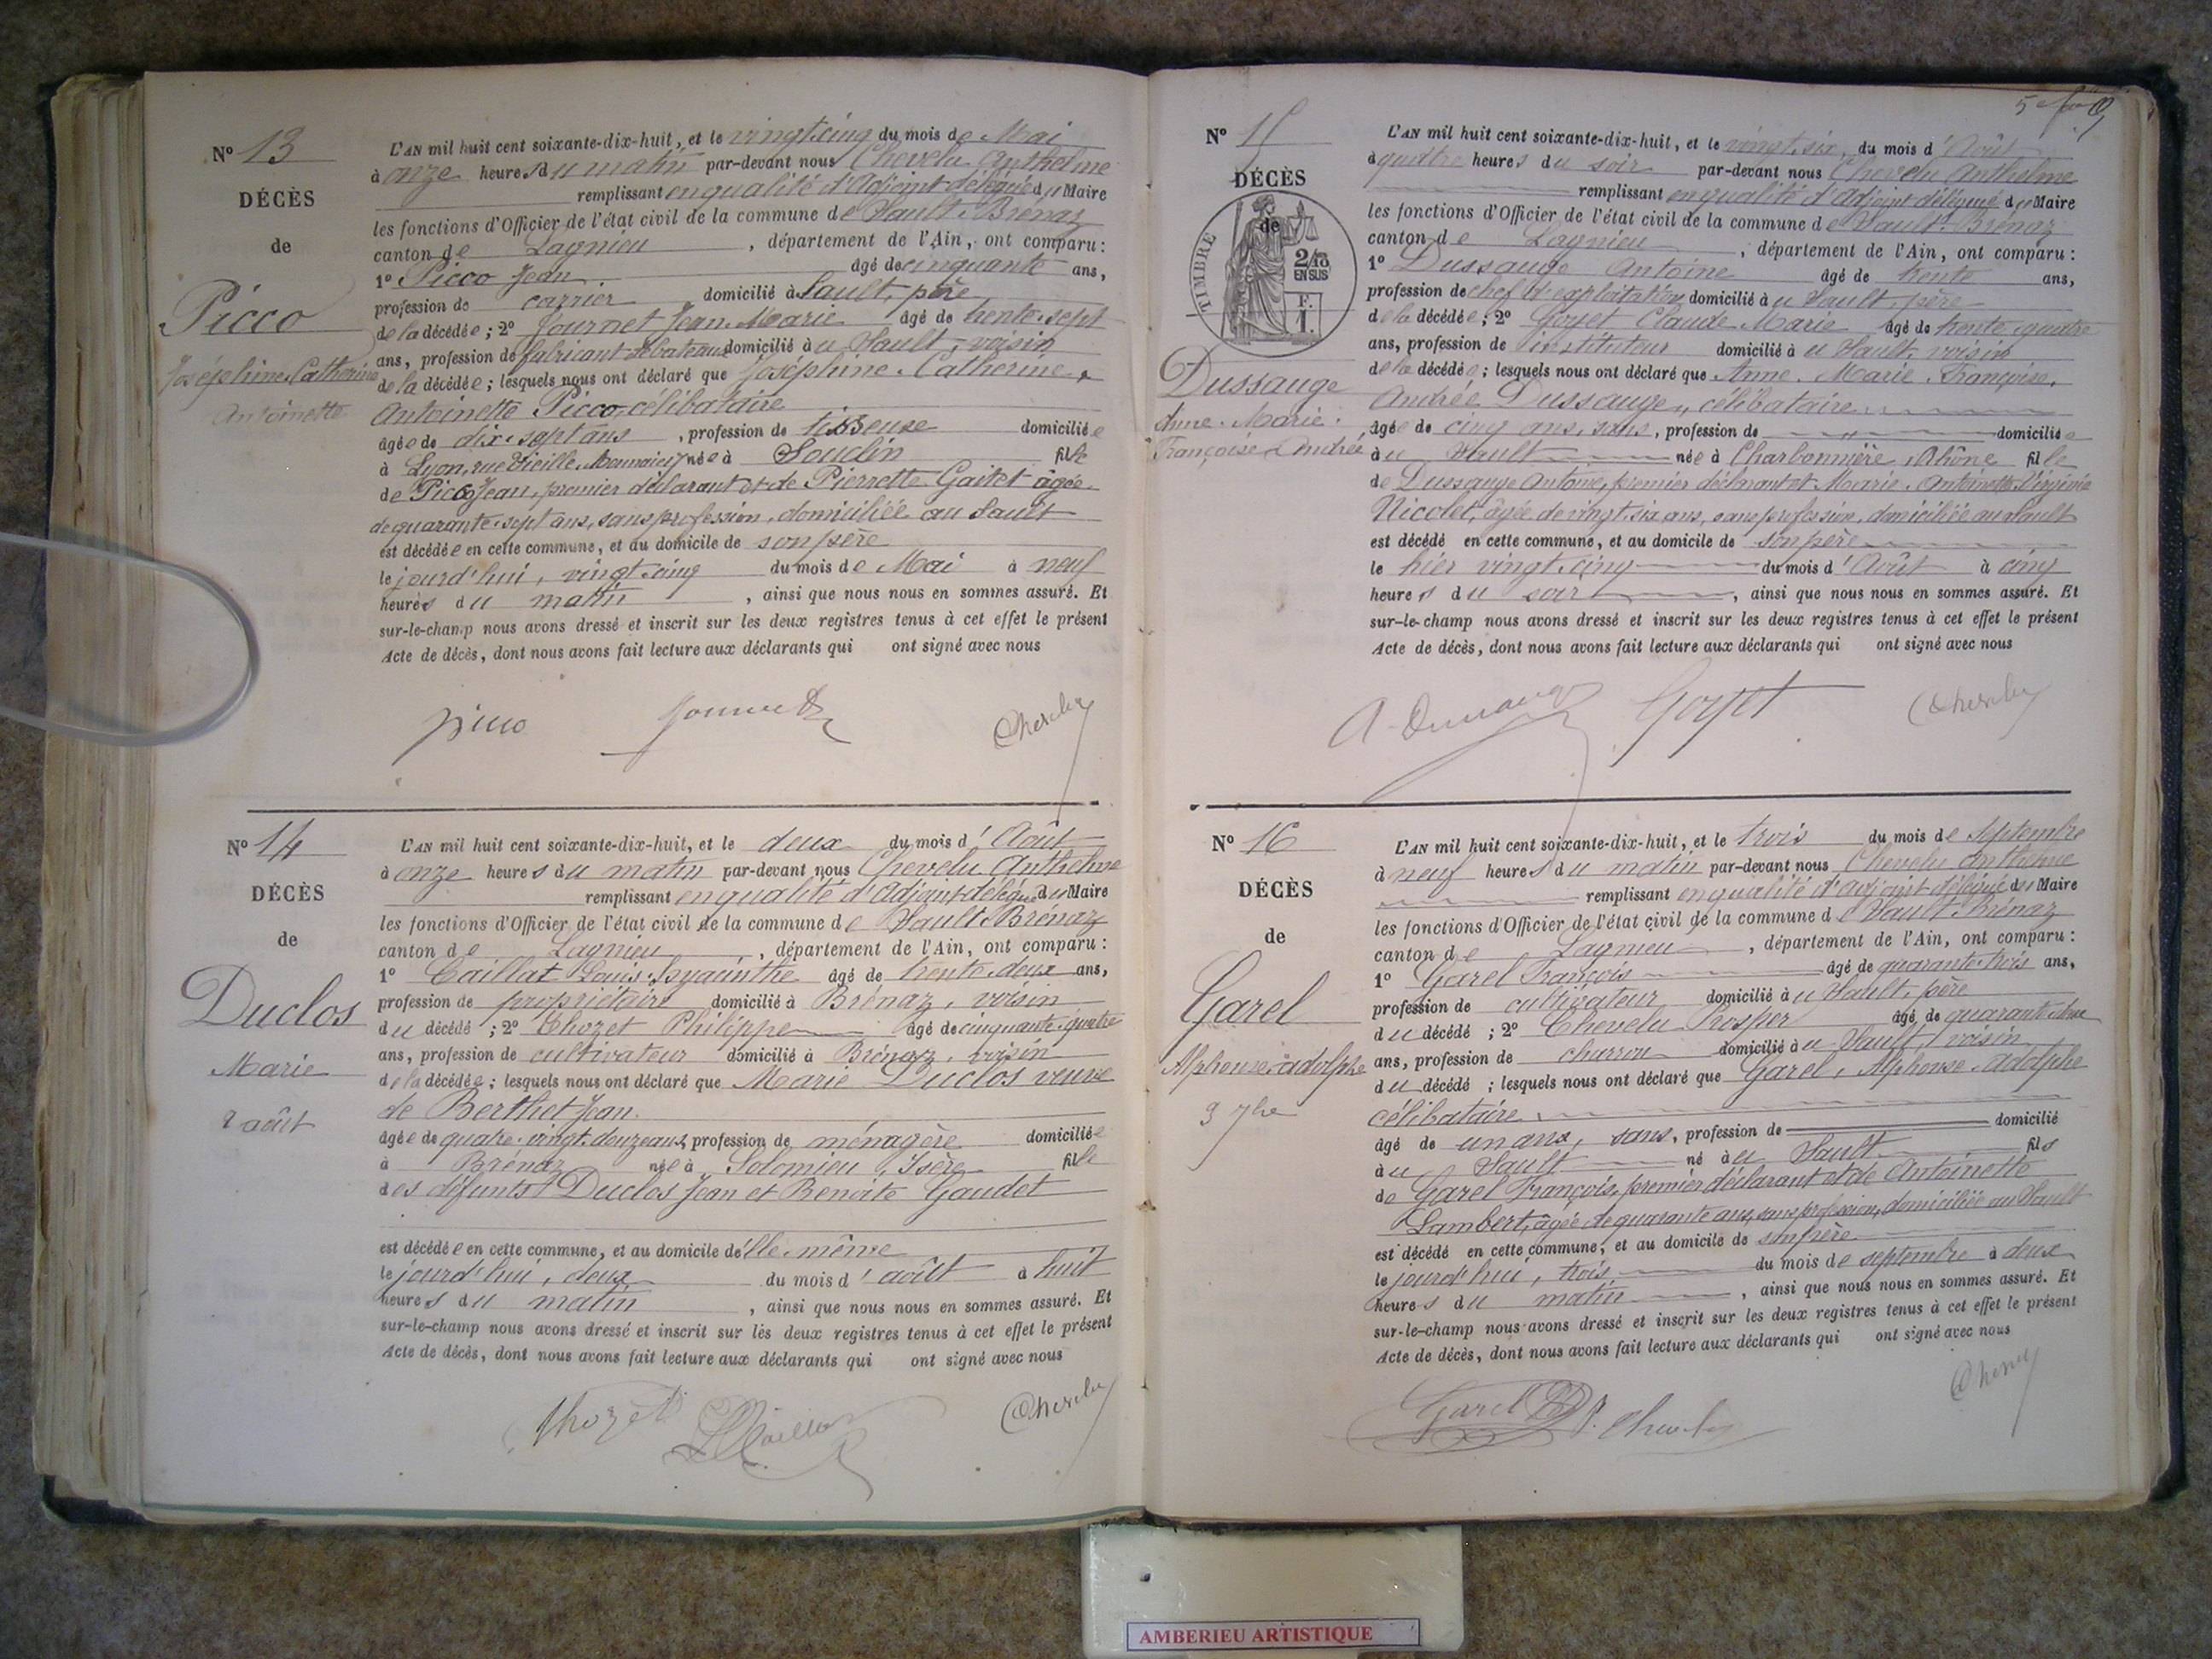 N° 13
DÉCÈS
de
Picco
Joséphine Catherine
Antoinette
L'AN mil huit cent soixante-dix-huit, et le vingt cinq du mois de Mai
à onze heures du matin par-devant nous Chevelu Anthelme
remplissant en qualité d'Adjoint délégué du Maire
les fonctions d'Officier de l'état civil de la commune de Sault-Brénaz
canton de Lagnieu, département de l'Ain, ont comparu :
1° Picco Jean âgé de cinquante ans,
profession de carrier domicilié à Sault, père
de la décédée ; 2° Journet Jean Marie âgé de trente-sept
ans, profession de fabricant de bateaux domicilié à u Sault, voisin
de la décédée ; lesquels nous ont déclaré que Joséphine Catherine
Antoinette Picco, célibataire
âgée de dix-sept ans, profession de tisseuse domiciliée
à Lyon, rue Vieille Monnaie, née à Soudin fille
de Picco Jean, premier déclarant et de Pierrette Gaitet âgée
de quarante-sept ans, sans profession, domiciliée au Sault
est décédée en cette commune, et au domicile de son père
le jourd'hui, vingt cinq du mois de Mai à neuf
heures du matin, ainsi que nous nous en sommes assuré. Et
sur-le-champ nous avons dressé et inscrit sur les deux registres tenus à cet effet le présent
Acte de décès, dont nous avons fait lecture aux déclarants qui ont signé avec nous
Picco Journet Chevelu
N° 14
DÉCÈS
de
Duclos
Marie
2 août
L'AN mil huit cent soixante-dix-huit, et le deux du mois d'Août
à onze heures du matin par-devant nous Chevelu Anthelme
remplissant en qualité d'Adjoint délégué du Maire
les fonctions d'Officier de l'état civil de la commune de Sault-Brénaz
canton de Lagnieu, département de l'Ain, ont comparu :
1° Caillat Louis Hyacinthe âgé de trente-deux ans,
profession de propriétaire domicilié à Brénaz, voisin
du décédé ; 2° Thozet Philippe âgé de cinquante-quatre
ans, profession de cultivateur domicilié à Brénaz, voisin
de la décédée ; lesquels nous ont déclaré que Marie Duclos veuve
de Berthet Jean
âgée de quatre-vingt-douze ans, profession de ménagère domiciliée
à Brénaz née à Solomieu, Isère fille
des défunts Duclos Jean et Benoite Gaudet
est décédée en cette commune, et au domicile d'elle-même
le jourd'hui, deux du mois d'août à huit
heures du matin, ainsi que nous nous en sommes assuré. Et
sur-le-champ nous avons dressé et inscrit sur les deux registres tenus à cet effet le présent
Acte de décès, dont nous avons fait lecture aux déclarants qui ont signé avec nous
Thozet L Caillat Chevelu
5e
N° 15
DÉCÈS
de
TIMBRE
2/10
EN SUS
Dussauge
Anne. Marie.
Françoise Andrée
L'AN mil huit cent soixante-dix-huit, et le vingt-six du mois d'Août
à quatre heures du soir par-devant nous Chevelu Anthelme
remplissant en qualité d'Adjoint délégué du Maire
les fonctions d'Officier de l'état civil de la commune de Sault-Brénaz
canton de Lagnieu, département de l'Ain, ont comparu :
1° Dussauge Antoine âgé de trente ans,
profession de chef d'exploitation domicilié à u Sault, père
de la décédée ; 2° Goyet Claude Marie âgé de trente-quatre
ans, profession de instituteur domicilié à u Sault, voisin
de la décédée ; lesquels nous ont déclaré que Anne. Marie. Françoise.
Andrée Dussauge, célibataire
âgée de cinq ans, sans, profession de domiciliée
à u Sault née à Charbonnière, Rhône fille
de Dussauge Antoine, premier déclarant et Marie Antoinette Virginie
Nicolet, âgée de vingt-six ans, sans profession, domiciliée au Sault
est décédé en cette commune, et au domicile de son père
le hier vingt-cinq du mois d'Août à cinq
heures du soir, ainsi que nous nous en sommes assuré. Et
sur-le-champ nous avons dressé et inscrit sur les deux registres tenus à cet effet le présent
Acte de décès, dont nous avons fait lecture aux déclarants qui ont signé avec nous
A. Dussauge Goyet Chevelu
N° 16
DÉCÈS
de
Garel
Alphonse Adolphe
3 7bre
L'AN mil huit cent soixante-dix-huit, et le trois du mois de Septembre
à neuf heures du matin par-devant nous Chevelu Anthelme
remplissant en qualité d'adjoint délégué du Maire
les fonctions d'Officier de l'état civil de la commune de Sault-Brénaz
canton de Lagnieu, département de l'Ain, ont comparu :
1° Garel François âgé de quarante-trois ans,
profession de cultivateur domicilié à u Sault, père
du décédé ; 2° Chevelu Prosper âgé de quarante-deux
ans, profession de charron domicilié à u Sault, voisin
du décédé ; lesquels nous ont déclaré que Garel, Alphonse Adolphe
célibataire
âgé de un ans, sans, profession de domicilié
à u Sault né à u Sault fils
de Garel François, premier déclarant et de Antoinette
Lambert, âgée de quarante ans, sans profession, domiciliée au Sault
est décédé en cette commune, et au domicile de son père
le jourd'hui, trois du mois de septembre à deux
heures du matin, ainsi que nous nous en sommes assuré. Et
sur-le-champ nous avons dressé et inscrit sur les deux registres tenus à cet effet le présent
Acte de décès, dont nous avons fait lecture aux déclarants qui ont signé avec nous
Garel P. Chevelu Chevelu
AMBERIEU ARTISTIQUE